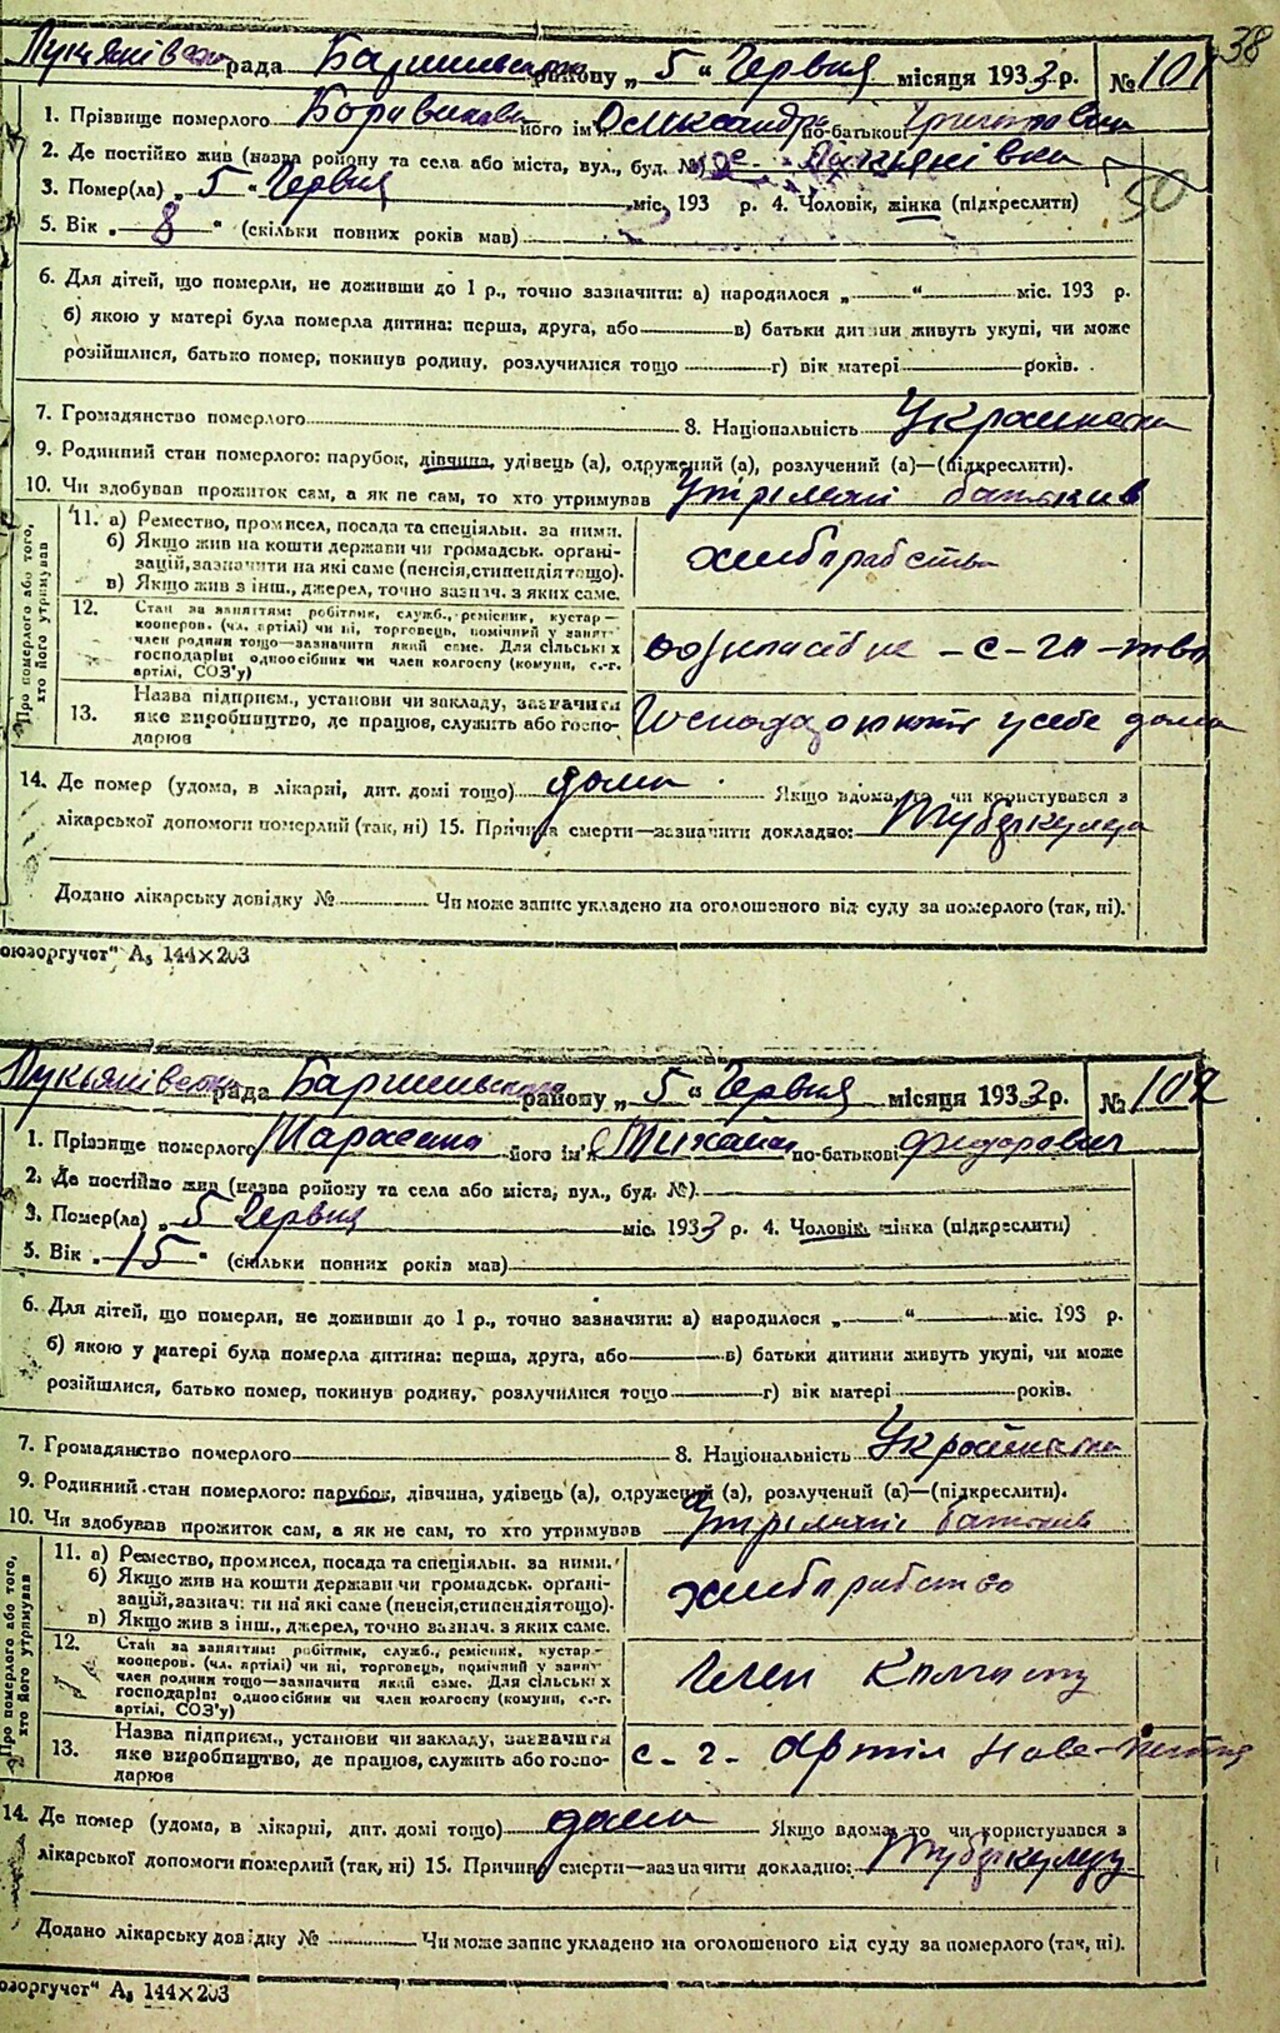 38
Лукянівська рада Баришевського району „ 5 " Червня місяця 1933 р. № 101
1. Прізвище померлого його ім'я Олександра по-батькові Григоровна
2. Де постійно жив (назва району та села або міста, вул., буд. №) с. Лукьянівка
50
3. Помер(ла) „ 5 " Червня міс. 193 р. 4. Чоловік, жінка (підкреслити)
5. Вік „ 8 " (скільки повних років мав)
6. Для дітей, що померли, не доживши до 1 р., точно зазначити: а) народилося „ " міс. 193 р.
б) якою у матері була померла дитина: перша, друга, або в) батьки дитини живуть укупі, чи може
розійшлися, батько помер, покинув родину, розлучилися тощо г) вік матері років.
7. Громадянство померлого 8. Національність Украинска
9. Родинний стан померлого: парубок, дівчина, удівець (а), одружений (а), розлучений (а)—(підкреслити).
10. Чи здобував прожиток сам, а як не сам, то хто утримував Утріманні батьків
Про померлого або того, хто його утримував
11. а) Ремество, промисел, посада та спеціяльн. за ними.
б) Якщо жив на кошти держави чи громадськ. органі-
зацій, зазначити на які саме (пенсія, стипендія тощо).
в) Якщо жив з інш., джерел, точно зазнач. з яких саме.
хлибпрабства
12. Стан за заняттям: робітник, служб., ремісник, кустар—
кооперов. (чл. артілі) чи ні, торговець, помічний у занят.
член родини тощо—зазначити який саме. Для сільських
господарів: одноосібник чи член колгоспу (комуни, с.-г.
артілі, СОЗ'у)
с-гп-тва
13. Назва підприєм., установи чи закладу, зазначити
яке виробництво, де працюв, служить або госпо-
дарюв
у себе дома
14. Де помер (удома, в лікарні, дит. домі тощо) дома Якщо вдома, то чи користувався з
лікарської допомоги померлий (так, ні) 15. Причина смерти—зазначити докладно: Тубіркулоза
Додано лікарську довідку № Чи може запис укладено на оголошеного від суду за померлого (так, ні).
оюзоргучот" А₅ 144×203
Лукьянівська рада Баришевського району „ 5 " Червня місяця 1933 р. № 102
1. Прізвище померлого його ім'я Михайло по-батькові Федорович
2. Де постійно жив (назва району та села або міста, вул., буд. №).
3. Помер(ла) „ 5 Червня міс. 1933 р. 4. Чоловік, жінка (підкреслити)
5. Вік „ 15 " (скільки повних років мав)
6. Для дітей, що померли, не доживши до 1 р., точно зазначити: а) народилося „ " міс. 193 р.
б) якою у матері була померла дитина: перша, друга, або в) батьки дитини живуть укупі, чи може
розійшлися, батько помер, покинув родину, розлучилися тощо г) вік матері років.
7. Громадянство померлого 8. Національність Украинска
9. Родинний стан померлого: парубок, дівчина, удівець (а), одружений (а), розлучений (а)—(підкреслити).
10. Чи здобував прожиток сам, а як не сам, то хто утримував Утріманні батьків
Про померлого або того, хто його утримував
11. а) Ремество, промисел, посада та спеціяльн. за ними.
б) Якщо жив на кошти держави чи громадськ. органі-
зацій, зазначити на які саме (пенсія, стипендія тощо).
в) Якщо жив з інш., джерел, точно зазнач. з яких саме.
хлибпрабство
12. Стан за заняттям: робітник, служб., ремісник, кустар—
кооперов. (чл. артілі) чи ні, торговець, помічний у занят.
член родини тощо—зазначити який саме. Для сільських
господарів: одноосібник чи член колгоспу (комуни, с.-г.
артілі, СОЗ'у)
Член Калгоспу
13. Назва підприєм., установи чи закладу, зазначити
яке виробництво, де працюв, служить або госпо-
дарюв
с-г- Артіл Нове-Життя
14. Де помер (удома, в лікарні, дит. домі тощо) дома Якщо вдома, то чи користувався з
лікарської допомоги померлий (так, ні) 15. Причина смерти—зазначити докладно: Тубіркулоз
Додано лікарську довідку № Чи може запис укладено на оголошеного від суду за померлого (так, ні).
юзоргучот" А₅ 144×203